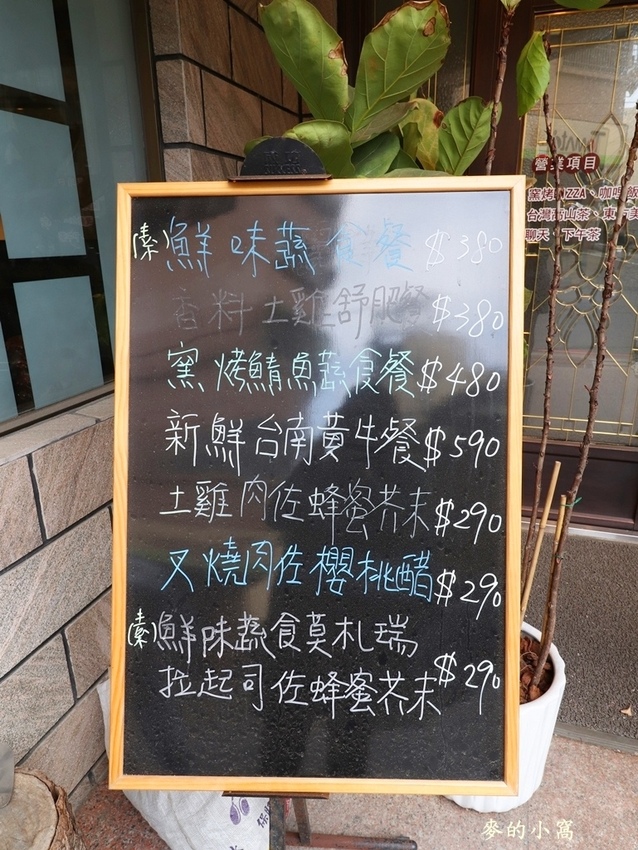 素 鮮味蔬食餐 $380
香料土雞舒肥餐 $380
窯烤鯖魚蔬食餐 $480
新鮮台南黃牛餐 $590
土雞肉佐蜂蜜芥末 $290
叉燒肉佐櫻桃醋 $290
素 鮮味蔬食莫札瑞
拉起司佐蜂蜜芥末 $290
營業項目
窯烤PIZZA、咖啡飯
台灣高山茶、東
聊天、下午茶
麥的小窩